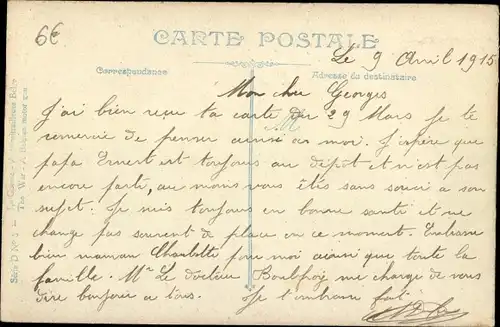 6€
CARTE POSTALE
Le 9 Avril 1915
Correspondance
Adresse du destinataire
Mon cher Georges
J'ai bien reçu ta carte du 29 Mars je te
remercie de penser ainsi à moi. J'espère que
papa Ernest est toujours au dépôt et n'est pas
encore parti, au moins vous êtes sans souci à son
sujet. Je suis toujours en bonne santé et ne
change pas souvent de place en ce moment. Embrasse
bien maman Charlotte pour moi ainsi que toute la
famille. Mr Le docteur me charge de vous
dire bonjour à tous. Je t'embrasse fort
Série D No 5
The War - A Belgian motor gun